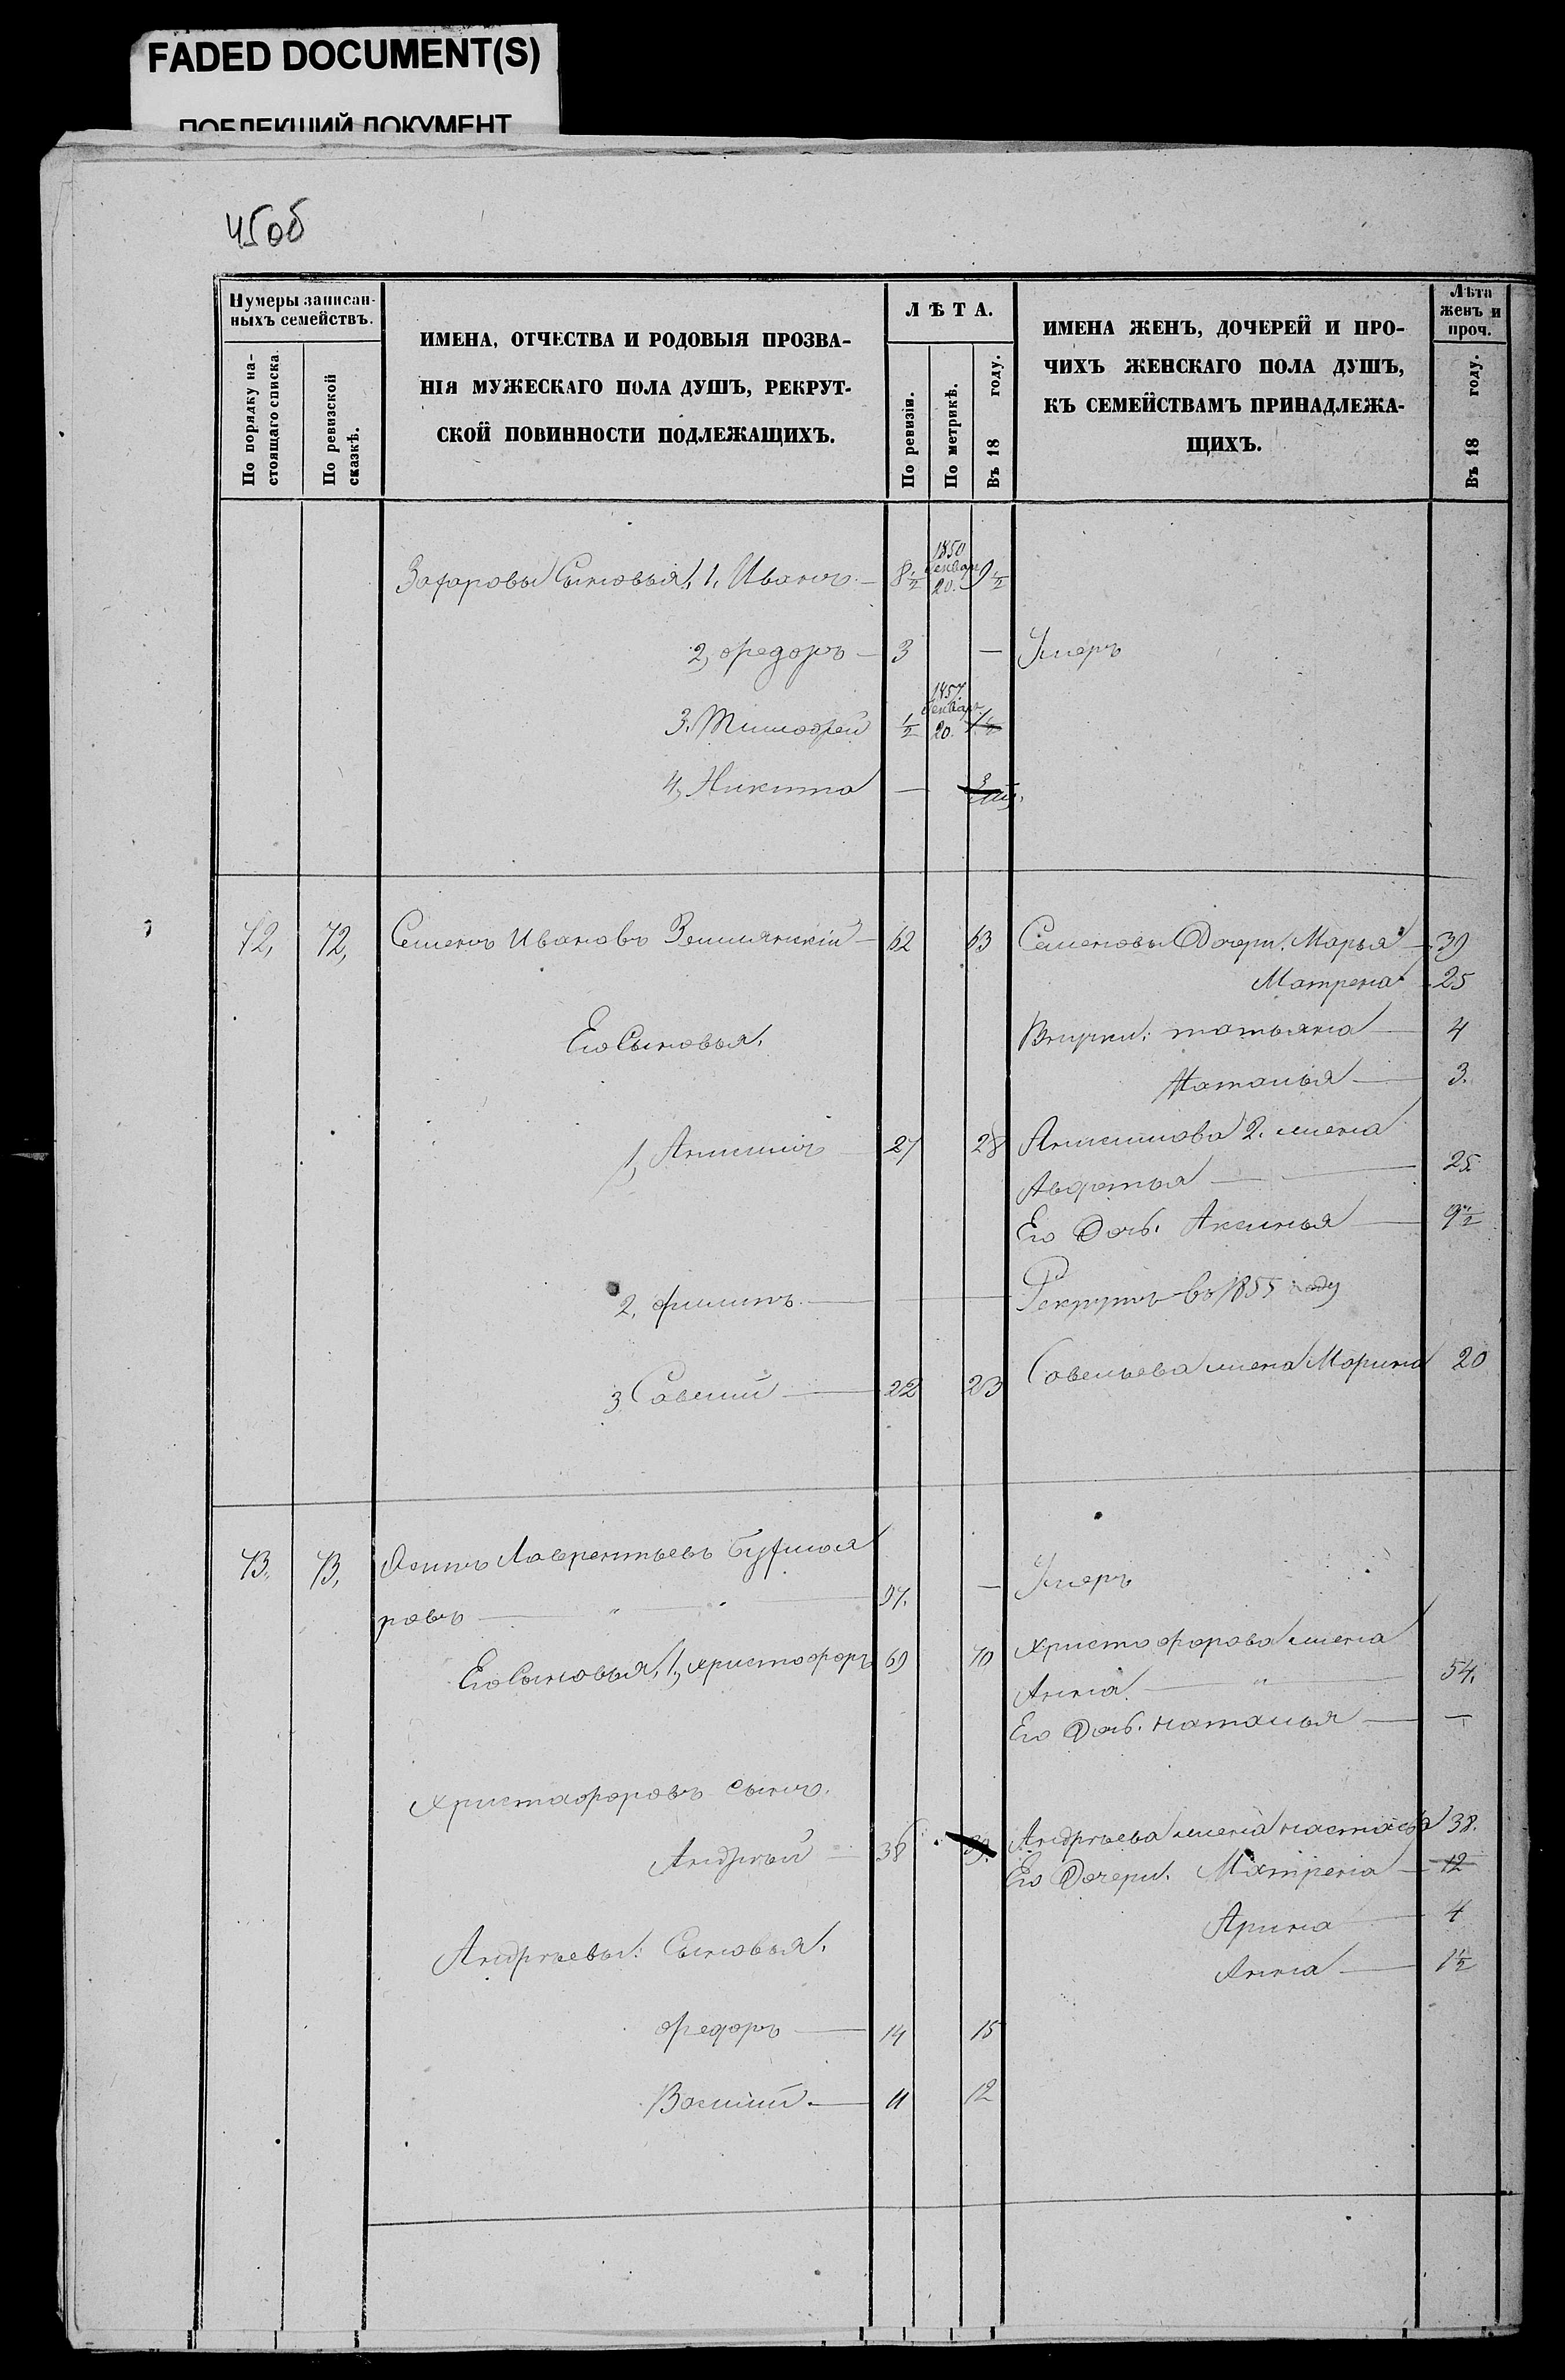 FADED DOCUMENT(S)
ПОБЛЕКШИЙ ДОКУМЕНТ
45об
Нумеры записан-
ныхъ семействъ.
По порядку на-
стоящаго списка.
По ревизской
сказкѣ.
ИМЕНА, ОТЧЕСТВА И РОДОВЫЯ ПРОЗВА-
НІЯ МУЖЕСКАГО ПОЛА ДУШЪ, РЕКРУТ-
СКОЙ ПОВИННОСТИ ПОДЛЕЖАЩИХЪ.
ЛѢТА.
По ревизіи.
По метрикѣ.
Въ 18 году.
ИМЕНА ЖЕНЪ, ДОЧЕРЕЙ И ПРО-
ЧИХЪ ЖЕНСКАГО ПОЛА ДУШЪ,
КЪ СЕМЕЙСТВАМЪ ПРИНАДЛЕЖА-
ЩИХЪ.
Лѣта
женъ и
проч.
Въ 18 году.
Захаровы Сыновья, 1, Иванъ — 8½ 1850 Генвар 20. 9½
2, Федоръ — 3 — Умеръ
3. Тимофей ½ 1857. Генвар. 20.
4, Никита —
72, 72, Семенъ Ивановъ Землянскій — 62 63 Семеновы Дочери. Марья — 39
Матрена 25
Его Сыновья. Внучки: татьяна — 4
Наталья — 3.
1, Анисимъ 27 28 Анисимова 2. жена
Авдотья — 25.
Его Дочь. Аксинья — 9½
2, филипъ. — Рекрутъ въ 1855 году
3 Савелий — 22 23 Савельева жена Марина 20
73. 73, Осипъ Лаврентьевъ
ровъ — 97. — Умеръ
Его Сыновья, 1, христофоръ 69 70 христофорова жена
Анна. — 54.
Его Дочь. наталья — —
христофоровъ сынъ.
Андрѣй — 38 39. Андрѣева жена настасья 38.
Его Дочери. Матрена — 12
Арина — 4
Андрѣевы: Сыновья. Анна — 1½
федоръ — 14 15
Василий. — 11 12